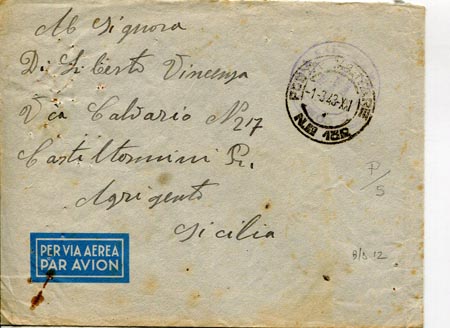 Al Signora
Di Liberto Vincenza
Via Calvario N 217
Casteltermini Pr.
Agrigento
Sicilia
POSTA MILITARE
-1-3.43-XXI
PER VIA AEREA
PAR AVION
P/S
B/D 12